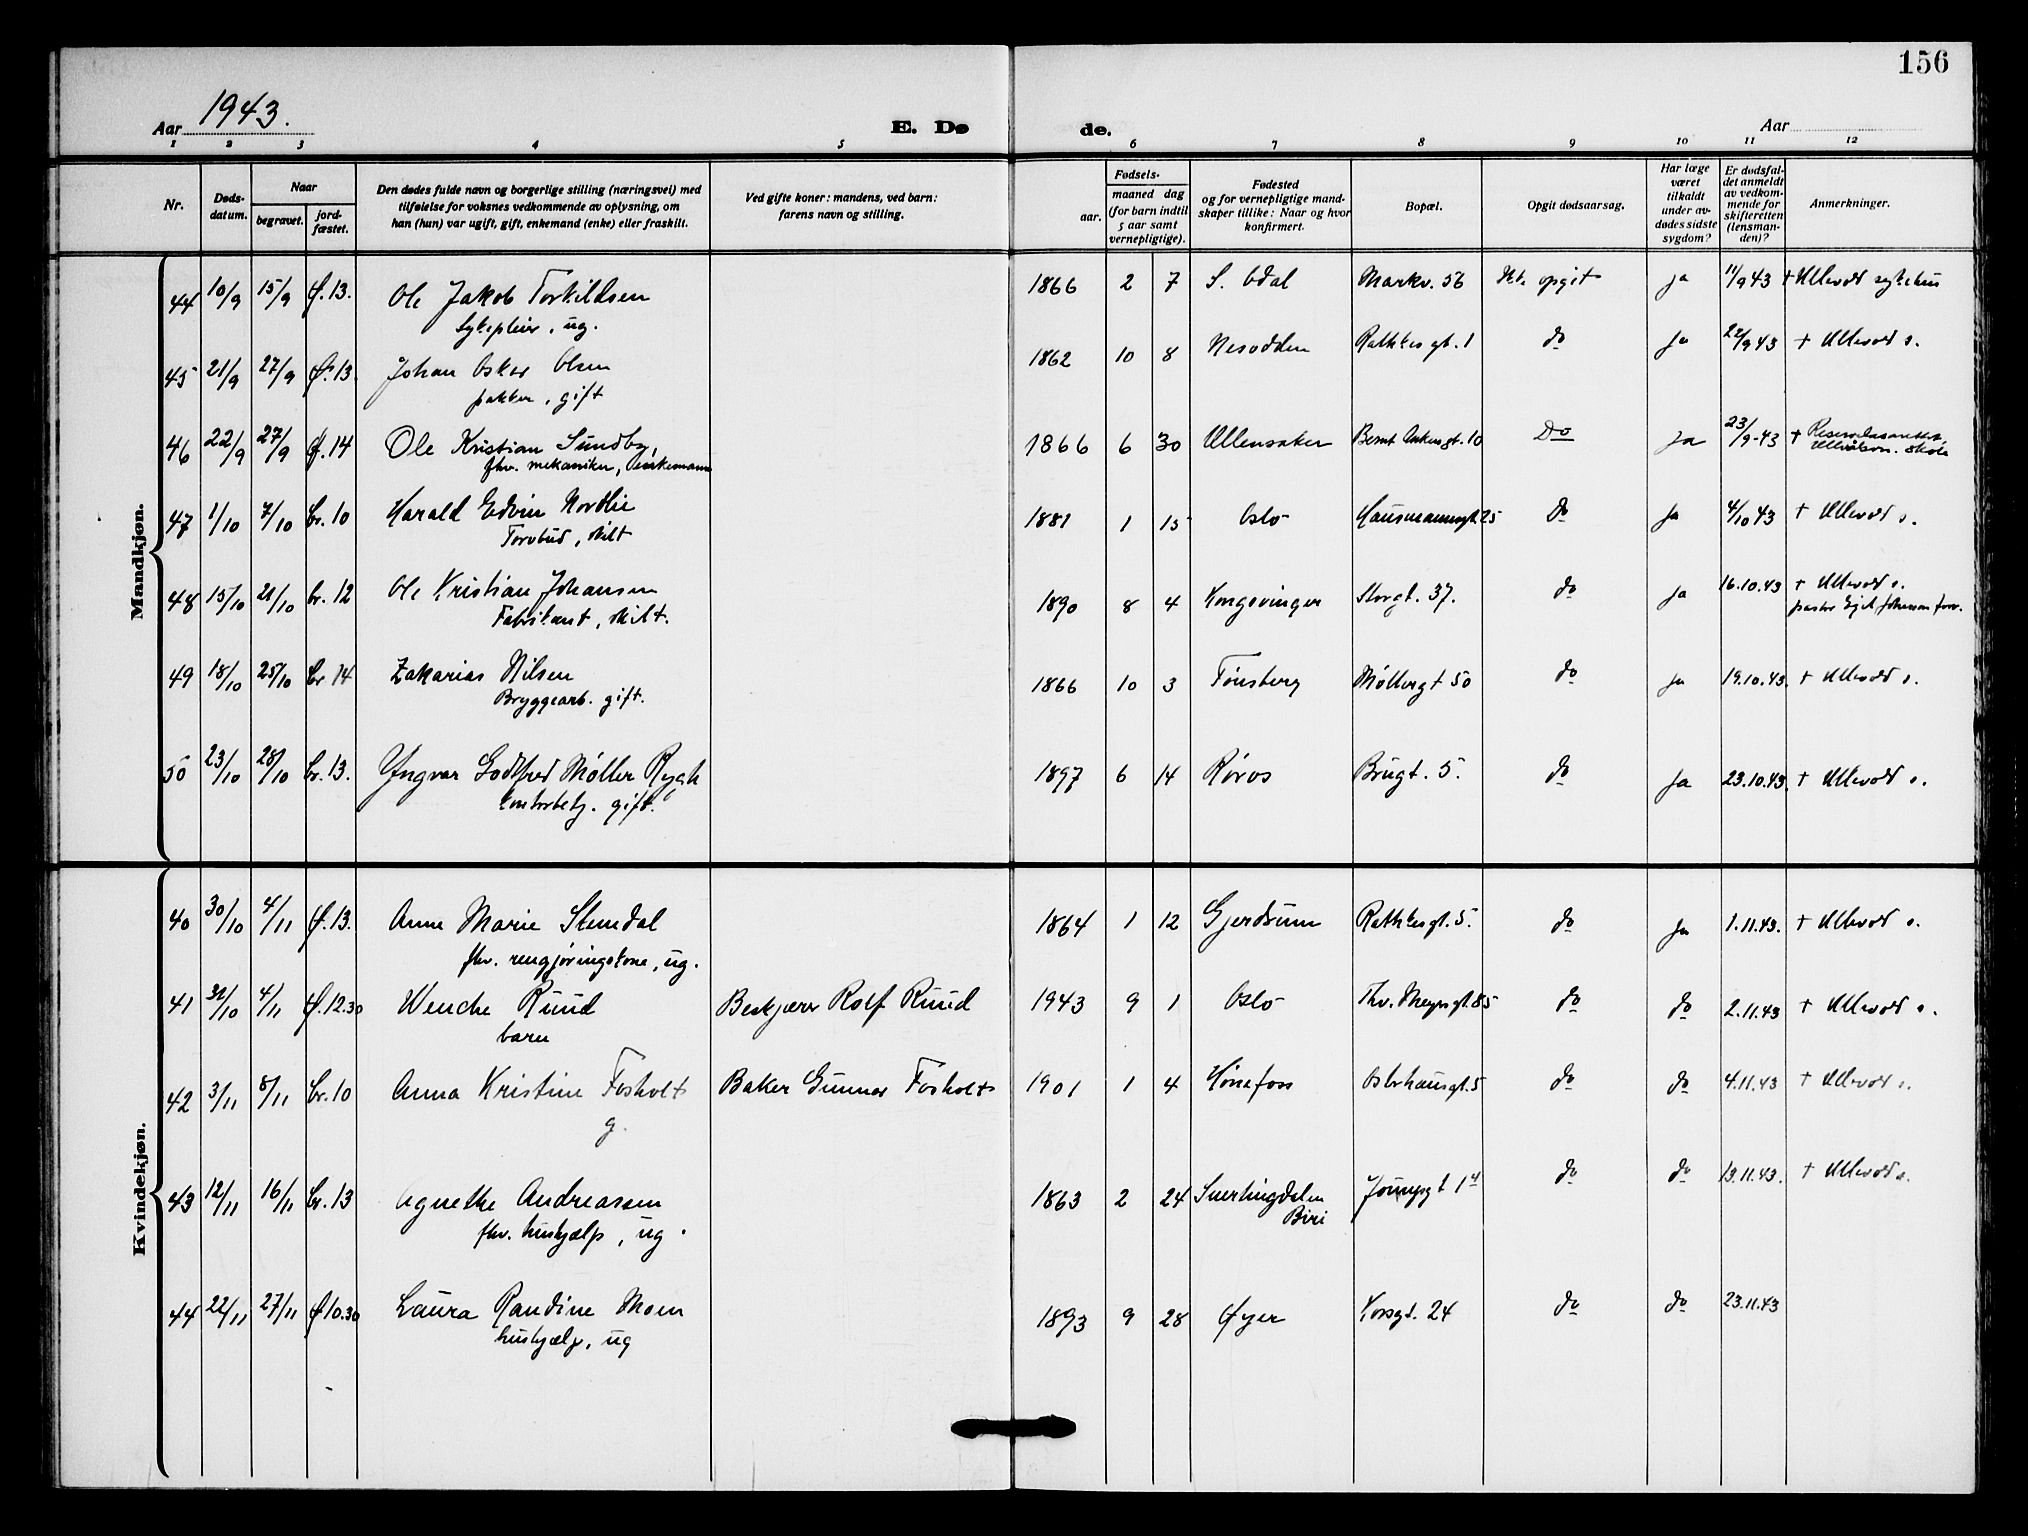 156
Aar 1943.
E. Døde.
Aar
1 2 3 4 5 6 7 8 9 10 11 12
Nr.
Døds-
datum.
Naar
begravet.
jord-
fæstet.
Den dødes fulde navn og borgerlige stilling (næringsvei) med
tilføielse for voksnes vedkommende av oplysning, om
han (hun) var ugift, gift, enkemand (enke) eller fraskilt.
Ved gifte koner: mandens, ved barn:
farens navn og stilling.
Fødsels-
aar.
maaned dag
(for barn indtil
5 aar samt
vernepligtige).
Fødested
og for vernepligtige mand-
skaper tillike: Naar og hvor
konfirmert.
Bopæl.
Opgit dødsaarsag.
Har læge
været
tilkaldt
under av-
dødes sidste
sygdom?
Er dødsfal-
det anmeldt
av vedkom-
mende for
skifteretten
(lensman-
den)?
Anmerkninger.
Mandkjøn.
44 10/9 15/9 Ø. 13. Ole Jakob Torkildsen 1866 2 7 S. Odal Markv. 56 Ikke opgit ja 11/9 43 + Ullevål sykehus
Sykepleier, ug.
45 21/9 27/9 Ø. 13. Johan Oskar Olsen 1862 10 8 Nesodden Rathkesgt. 1 do ja 22/9 43 + Ullevål s.
pakker, gift
46 22/9 27/9 Ø. 14 Ole Kristian Sundby, 1866 6 30 Ullensaker Bernt Ankersgt. 10 Do ja 23/9-43 +
fhv. mekaniker, Enkemann
47 1/10 7/10 br. 10 Harald Edvin Nordlie 1881 1 15 Oslo Hausmannsgt. 25 Do ja 4/10 43 + Ullevål s.
Torvbud, skilt
48 15/10 21/10 br. 12 Ole Kristian Johansen 1890 8 4 Kongsvinger Storgt. 37. do ja 16.10.43 + Ullevål s.
Fabrikant, skilt. pastor Egil Johansen forr.
49 18/10 25/10 br 14 Zakarias Nilsen 1866 10 3 Tønsberg Møllergt 50 do ja 19.10.43. + Ullevål s.
Bryggearb. gift.
50 23/10 28/10 br. 13. Yngvar Godtfred Møller Rygh 1897 6 14 Røros Brugt. 5. do ja 23.10.43. + Ullevål s.
kontorbetj. gift.
Kvindekjøn.
40 30/10 4/11 Ø. 13. Anne Marie Stendal 1864 1 12 Gjerdrum Rathkesgt. 5. do ja 1.11.43. + Ullevål s.
fhv. rengjøringskone, ug.
41 31/10 4/11 Ø. 12.30 Wenche Ruud Beskjærer Rolf Ruud 1943 9 1 Oslo Thv. Meyersgt. 85 do do 2.11.43 + Ullevål s.
barn
42 3/11 8/11 br. 10 Anna Kristine Fosholt Baker Gunnar Fosholt 1901 1 4 Hønefoss Osterhausgt. 5 do do 4.11.43 + Ullevål s.
g.
43 12/11 16/11 br. 13 Agnethe Andreassen 1863 2 24 Snertingdalen Youngsgt 14 do do 13.11.43. + Ullevål s.
fhv. hushjælp, ug. Biri
44 22/11 27/11 Ø 10.30 Laura Randine Moen 1893 9 28 Øyer Korsgt. 24 do do 23.11.43
hushjælp, ug